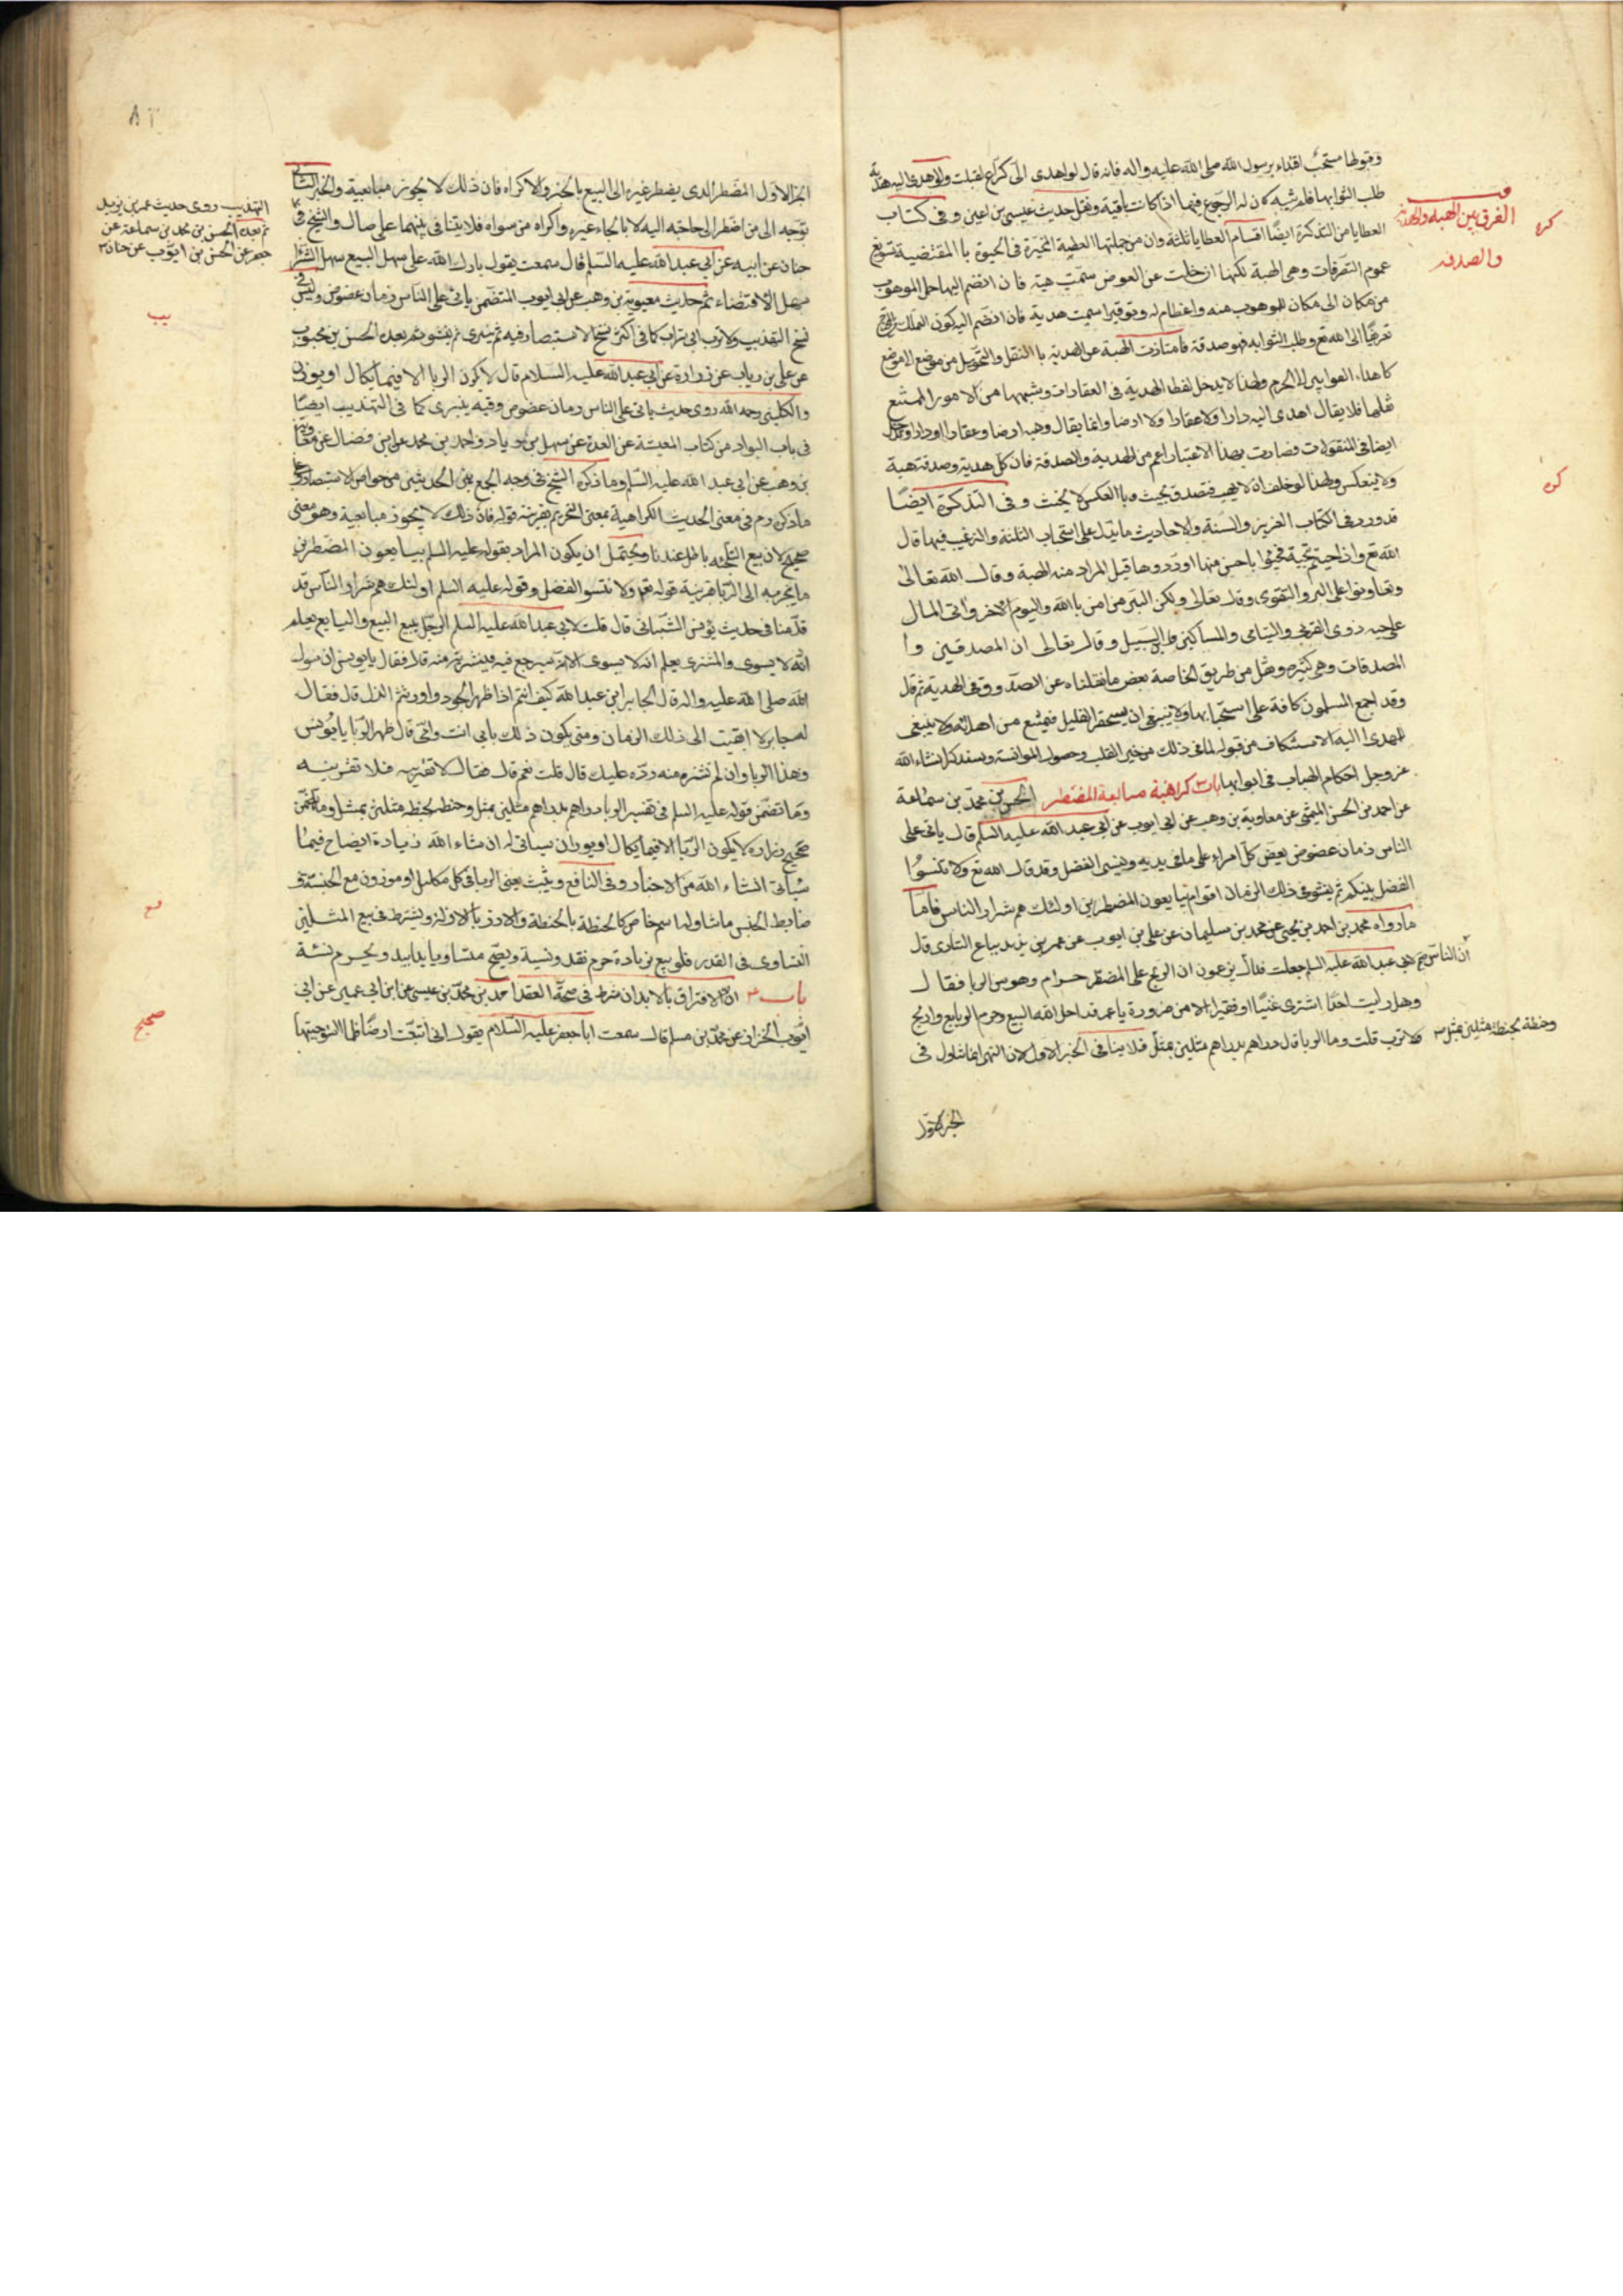 وقبولها مستحب اقتداء برسول الله صلى الله عليه واله فانه قال لو اهدى الى كراع لقبلت
طلب الثواب بها فلم يثبه كان له الرجوع فيها اذا كانت باقية ونقل حديث عيسى بن اعين وفى كتاب
الفرق بين الهبة والهدية
والصدقة
العطايا من التذكرة ايضا اقسام العطايا ثلثة وان من جملتها العطية المنجزة فى الحيوة
عموم التصرفات وهى الهبة لكنها ان خلت عن العوض سميت هبة فان انضم اليها حمل الموهوب
من مكان الى مكان للموهوب منه واعظام له وتوقير اسميت هدية فان انضم اليه كون التمليك
تقربا الى الله تع وطلب الثوابه فهو صدقة فامتازت الهبة عن الهدية باالنقل والتحويل من موضع الى موضع
ولهذا لا يدخل لفظ الهدية فى العقارات وشبهها من الامور الممتنع
نقلها فلا يقال اهدى اليه دارا ولا عقارا ولا ارضا وانما يقال وهبه ارضا وعقارا او دارا
ايضا فى المنقولات فصارت بهذا الاعتبار اعم من الهدية والصدقة فان كل هدية وصدقة هبة
ولا ينعكس ولهذا لو حلف ان لا يهب فتصدق يحنث وباالعكس لا يحنث وفى التذكرة ايضا
قد ورد فى الكتاب العزيز والسنة والاحاديث ما يدل على استحباب الثلثة والترغيب فيها قال
الله تع واذا حييتم بتحية فحيوا باحسن منها او ردوها قيل المراد منه الهبة وقال الله تعالى
وتعاونوا على البر والتقوى وقال تعالى ولكن البر من امن باالله واليوم الاخر واتى المال
على حبه ذوى القربى واليتامى والمساكين وابن السبيل وقال تعالى ان المصدقين وا
المصدقات وهى كثيرة ونقل من طريق الخاصة بعض ما نقلناه عن الصدوق فى الهدية ثم قال
وقد اجمع المسلمون كافة على استحبابها ولا ينبغى ان يستحقر القليل فيمتنع من اهدائه ولا ينبغى
للمهدى اليه الاستنكاف من قبوله لما فى ذلك من جبر القلب وحصول الموانسة وسنذكر انشاء الله
عز وجل احكام الهبات فى ابوابها باب كراهية مبايعة المضطر الحسن بن محمد بن سماعة
عن احمد بن الحسن الميثمى عن معاوية بن وهب عن ابى ايوب عن ابى عبد الله عليه السلم قال ياتى على
الناس زمان عضوض يعض كل امراء على ما فى يديه وينسى الفضل وقد قال الله تع ولا تنسوا
الفضل بينكم ثم ينشو فى ذلك الزمان اقوام يبايعون المضطرين اولئك هم شرار الناس فاما
ما رواه محمد بن احمد بن يحيى عن محمد بن سليمان عن على بن ايوب عن عمر بن يزيد بياع السابرى قال
قلت لابى عبد الله عليه السلم جعلت فداك ان الناس يزعمون ان الربح على المضطر حرام وهو من الربا فقال
وهل رايت احدا اشترى غنيا او فقيرا الا من ضرورة يا عمر قد احل الله البيع وحرم الربا بع واربح
ولا ترب قلت وما الربا قال دراهم بدراهم مثلين بمثل فلا ينافى الخبر الاول لان النهى انما تناول فى
وحنطة بحنطة مثلين بمثل
الخبر الاول
الخبر الاول المضطر الذى يضطر غيره الى البيع بالجبر والاكراه فان ذلك لا يجوز مبايعته والخبر الثانى
توجه الى من اضطر الى حاجته اليه لا بالجاء غيره واكراه من سواه فلا يتنافى بينهما على حال والشيخ فى
التهذيب روى حديث عمر بن يزيد
ثم بعده الحسن بن محمد بن سماعة عن
جعفر عن الحسن بن ايوب عن حنان
حنان عن ابيه عن ابى عبد الله عليه السلم قال سمعت يقول بارك الله على سهل البيع سهل الشرا
سهل الاقتضاء ثم حديث معوية بن وهب عن ابى ايوب المتضمن ياتى على الناس زمان عضوض وليس فى
نسخ التهذيب
عن على بن رياب عن زرارة عن ابى عبد الله عليه السلام قال لا يكون الربا الا فيما يكال او يوزن
والكلينى رحمه الله روى حديث ياتى على الناس زمان عضوض وفيه ينبرى كما فى التهذيب ايضا
فى باب النوادر من كتاب المعيشة عن العدة عن سهل بن زياد واحمد بن محمد عن ابن فضال عن معاوية
بن وهب عن ابى عبد الله عليه السلم وما ذكره الشيخ فى وجه الجمع بين الحديثين من خواص الاستبصار
ما ذكره رحم فى معنى الحديث الكراهية بمعنى التحريم بقرينة قوله فان ذلك لا يجوز مبايعته وهو معنى
صحيح لان بيع التلجئه باطل عندنا ويحتمل ان يكون المراد بقوله عليه السلم يبايعون المضطرين
ما ينجر به الى الربا بقرينة قوله تع ولا تنسوا الفضل وقوله عليه السلم اولئك هم شرار الناس قد
قدمنا فى حديث يونس الشيبانى قال قلت لابى عبد الله عليه السلم الرجل يبيع البيع والبايع يعلم
انه لا يسوى والمشترى يعلم انه لا يسوى الا انه سيرجع فيه فيشتريه منه قال فقال يا يونس ان رسول
الله صلى الله عليه واله قال لجابر ابن عبد الله كيف انتم اذا ظهر الجور واورثتم الذل قال فقال
له جابر لا ابقيت الى ذلك الزمان ومتى يكون ذلك بابى انت وامى قال ظهر الربا يا يونس
وهذا الربا وان لم تشتره منه رده عليك قال قلت نعم قال فقال لا تقربنه فلا تقربنه
وما تضمن قوله عليه السلم فى تفسير الربا دراهم بدراهم مثلين بمثل وحنطه بحنطه مثلين بمثل وما تضمن
صحيح زراره لا يكون الربا الا فيما يكال او يوزن سياتى له ان شاء الله زيادة ايضاح فيما
سياتى انشاء الله من الاخبار وفى النافع ويثبت يعنى الربا فى كل مكيل او موزون مع الجنسية و
ضابط الجنس ما تناوله اسم خاص كالحنطة بالحنطة والارز بالارز ويشترط فى بيع المثلين
التساوى فى القدر فلو بيع بزيادة حرم نقدا ونسية ويصح متساويا يدا بيد ويحرم نسئة
باب ان الافتراق بالابدان شرط فى صحة العقد احمد بن محمد بن عيسى عن ابن ابى عمير عن ابى
ايوب الخزاز عن محمد بن مسلم قال سمعت ابا جعفر عليه السلام يقول انى ابتعت ارضا فلما استوجبتها
صحيح